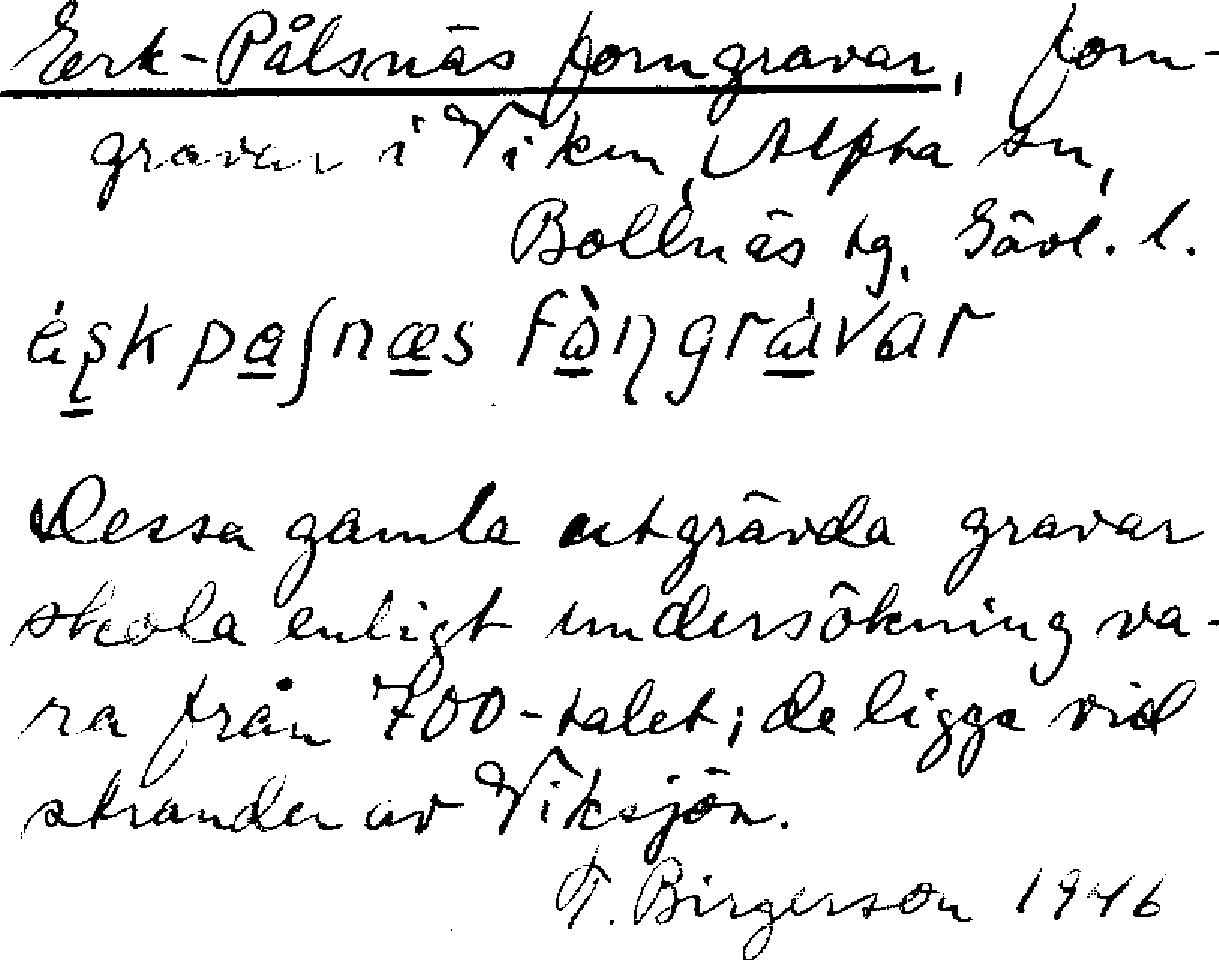 Eerk-Pålsnäs forngravar, forn-
gravar i Viken, Alfta sn,
Bollnäs tg, Gävl. l.
Dessa gamla utgrävda gravar
skola enligt undersökning va-
ra från 700-talet; de ligga vid
stranden av Viksjön.
T. Birgerson 1946